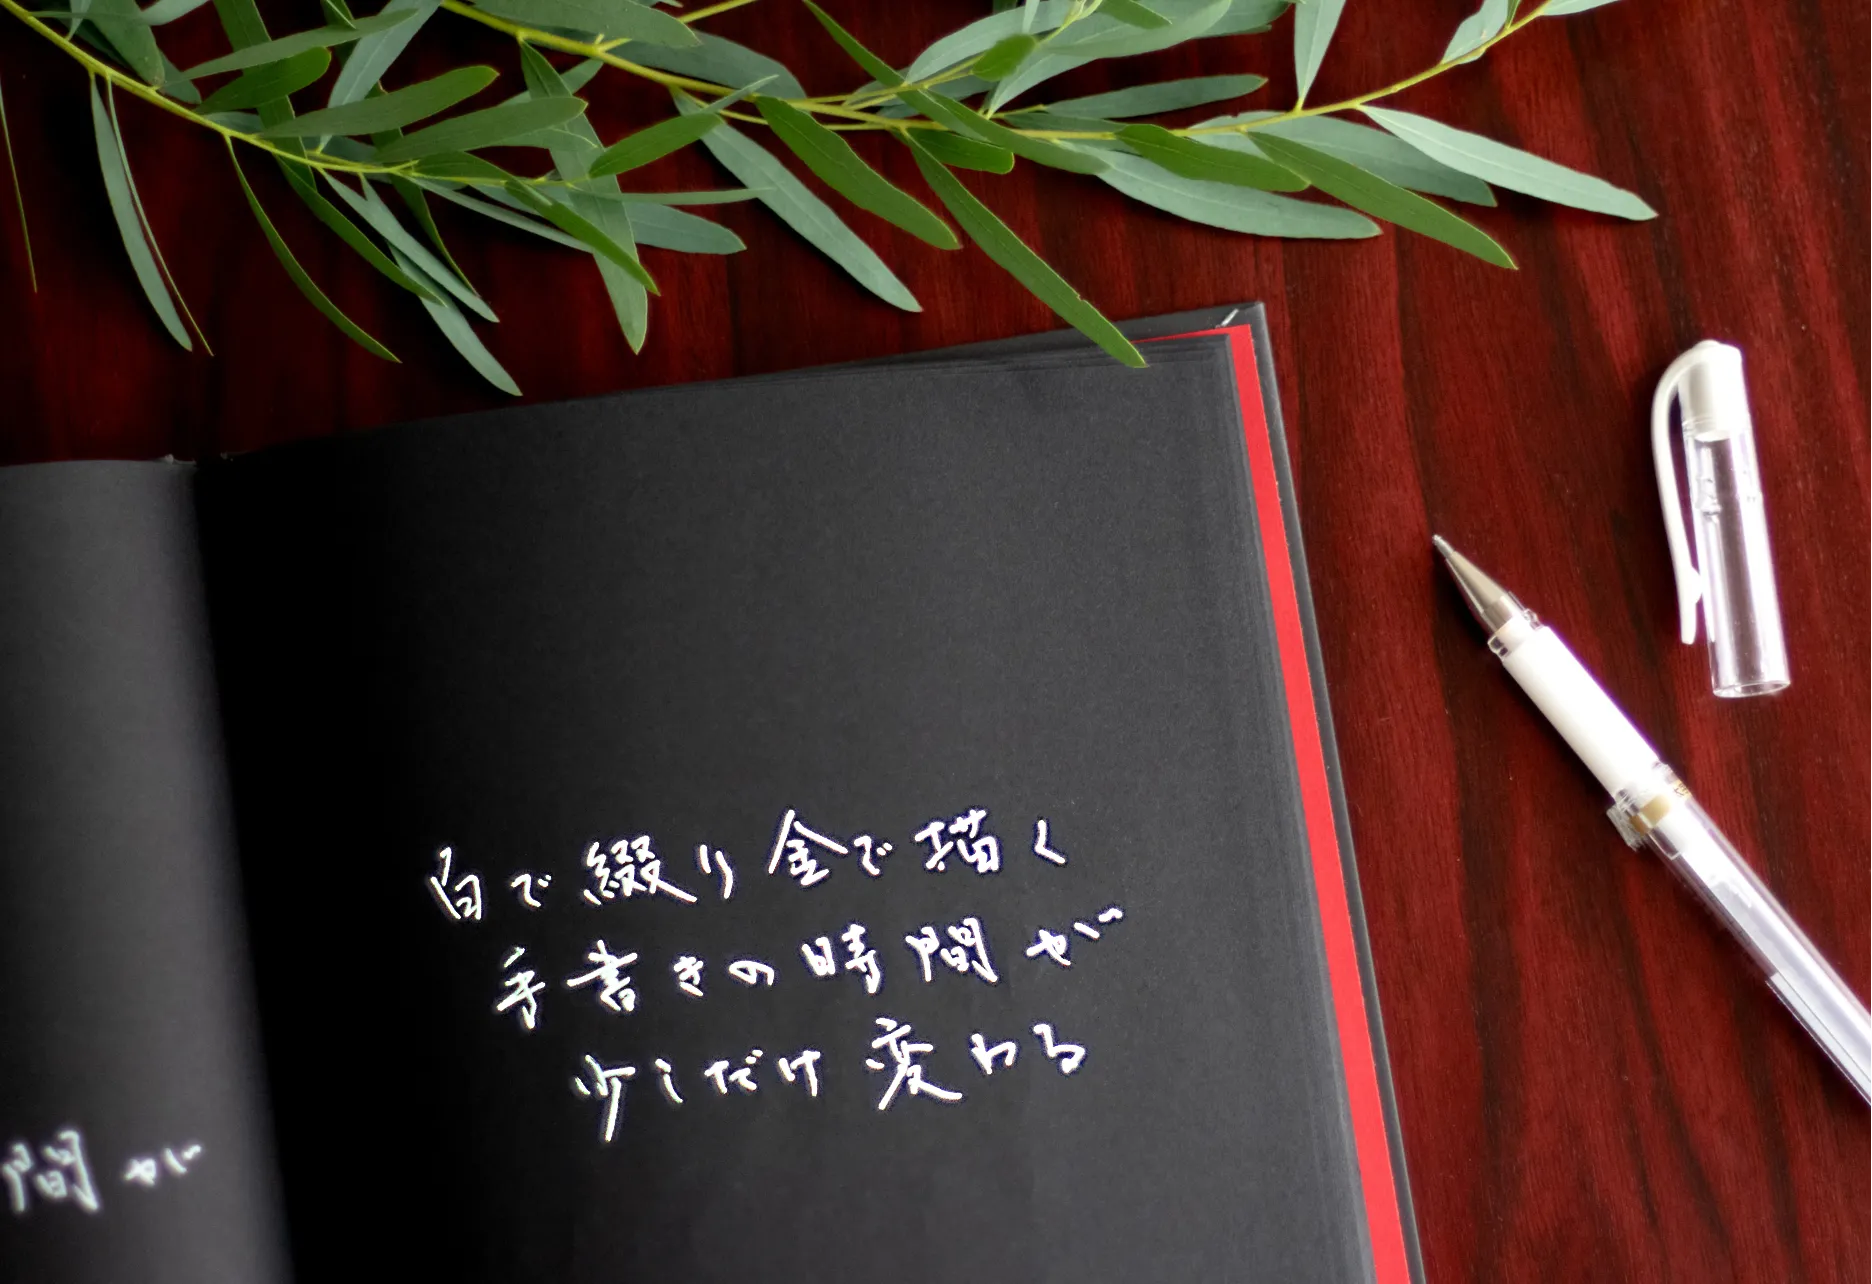 間が
白で綴り金で描く
手書きの時間が
少しだけ変わる